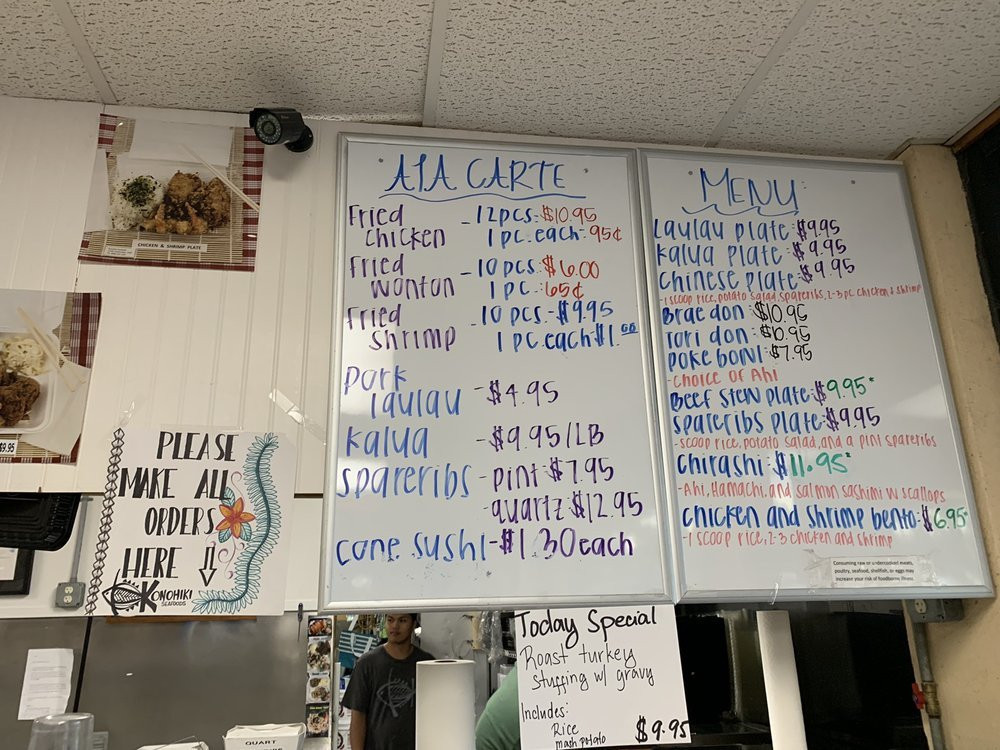 CHICKEN & SHRIMP PLATE
$9.95
PLEASE
MAKE ALL
ORDERS
HERE
KONOHIKI
SEAFOODS
AlA CARTE
Fried chicken - 12pcs: $10.95
1 pc. each: 95¢
Fried wonton - 10 pcs: $6.00
1 pc.: 65¢
Fried shrimp - 10 pcs. - $9.95
1 pc. each $1.00
Pork laulau - $4.95
kalua - $9.95/LB
spareribs - pint $7.95
- quartz $12.95
cone sushi - $1.30 each
MENU
Laulau plate: $9.95
kalua plate: $9.95
Chinese plate: $9.95
-1 scoop rice, potato salad, spareribs, 2-3 pc chicken & shrimp
Brae don: $10.95
Tori don: $10.95
Poke bowl: $7.95
-choice of Ahi
Beef stew plate: $9.95*
spareribs plate: $9.95
-scoop rice, potato salad, and a pint spareribs
Chirashi: $11.95*
-Ahi, Hamachi, and salmon sashimi w scallops
chicken and shrimp bento: $6.95*
-1 scoop rice, 2-3 chicken and shrimp
Consuming raw or undercooked meats,
poultry, seafood, shellfish, or eggs may
increase your risk of foodborne illness
Today Special
Roast turkey
stuffing w/ gravy
Includes:
Rice
mash potato
$9.95
QUART